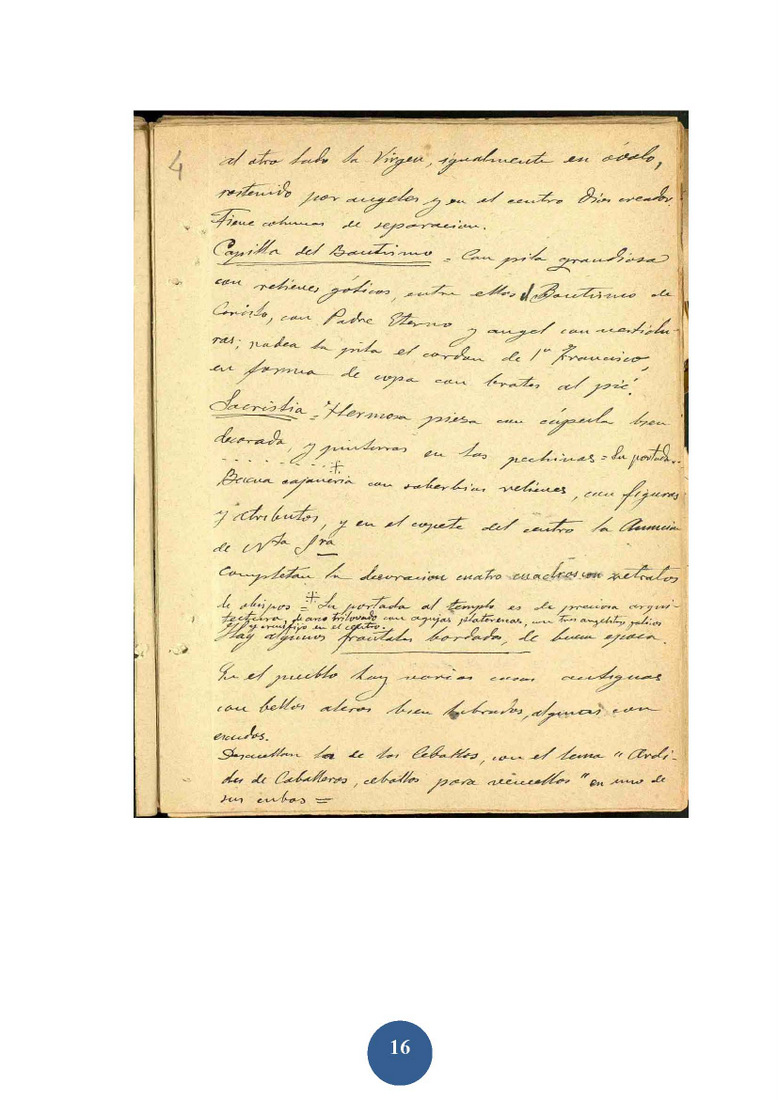 4
al otro lado la Virgen, igualmente en óvalo,
sostenido por angeles y en el centro Dios creador.
Tiene columnas de separacion.
Capilla del Bautismo = Con pila grandiosa
con relieves góticos, entre ellos el Bautismo de
Cristo, con Padre Eterno y angel con vestidu-
ras; rodea la pila el cordon de Sn Francisco,
en forma de copa con bratos al pié.
Sacristia = Hermosa pieza con cúpula bien
decorada, y pinturas en las pechinas = Su portada..
Buena cajoneria con soberbios relieves, con figuras
y atributos, y en el copete del centro la Anuncion
de Nta Sra
Completan la decoracion cuatro cuadros con retratos
de obispos = Su portada al templo es de preciosa arqui-
tectura, de arco trilovado con agujas platerescas, con tres angelitos goticos
y crucifijo en el centro.
Hay algunos frontales bordados, de buena epoca.
En el pueblo hay varias casas antiguas
con bellos aleros bien labrados, algunas con
escudos.
Descuellan la de los Ceballos, con el lema "Ardi-
des de Caballeros, ceballos para vencellos" en uno de
sus cubos =
16